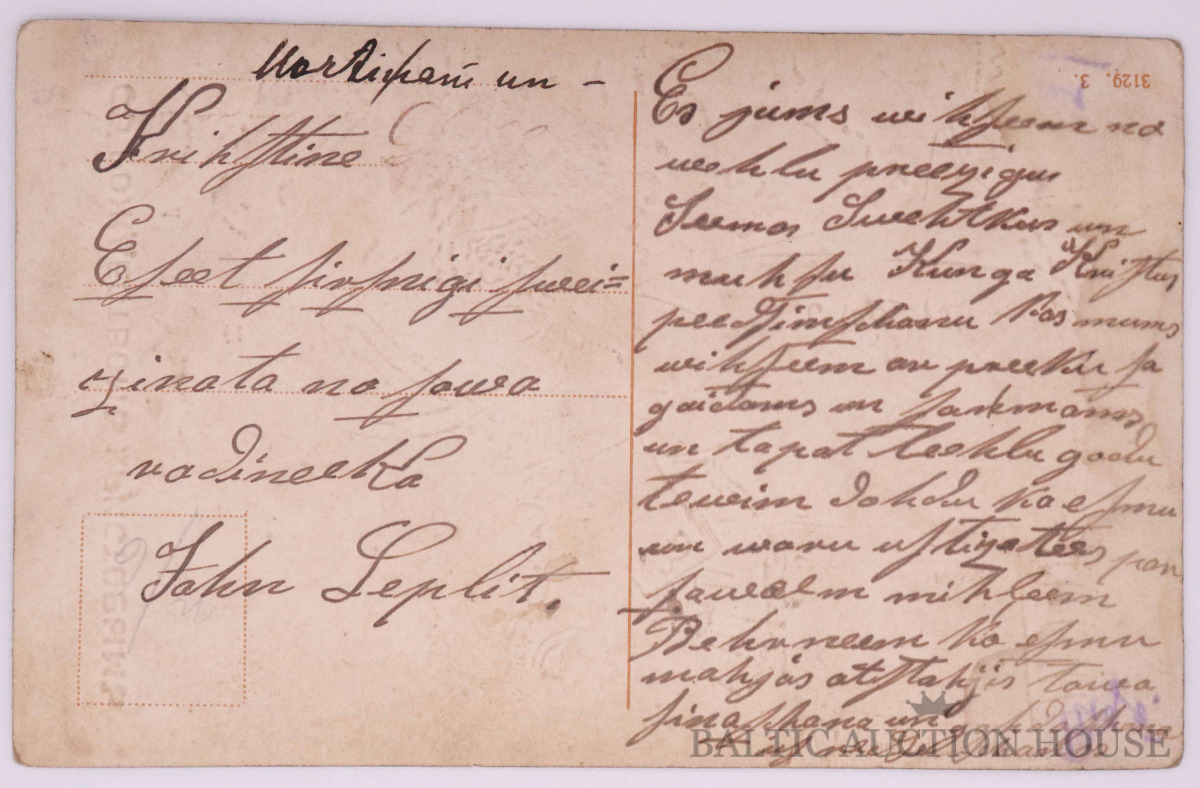 Martiņam un -
Krihstine
Eseet sirsnigi swei=
zinata no sawa
radineeka
Jahn Leplit.
3129. 3.
Es jums wihseem no
wehlu preezigus
Seemas Swehtkus un
muhsu Kunga Kristus
peedsimschanu kas mums
wihseem ar preeku sa
gaidams un sankmams
un tapat teehlu gadu
tewim dohdu ka esmu
un waru ustizetees par
saweem mihleem
Behrneem ka esmu
mahjas atistahjis tawa
sinaschana un
BALTIC AUCTION HOUSE